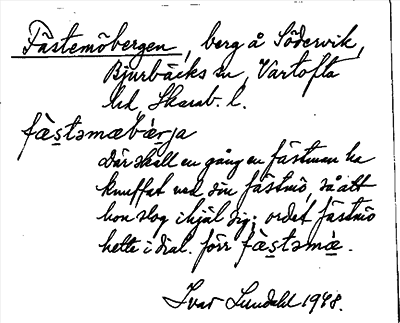 Fästemöbergen, berg å Södervik,
Bjurbäcks sn, Vartofta
hd, Skarab. l.
fæ̀stəmæbæ̀rja
Där skall en gång en fästman ha
knuffat ned sin fästmö, så att
hon slog ihjäl sig; ordet fästmö
hette i dial. förr fæ̀stəmæ̀.
Ivar Lundahl 1948.